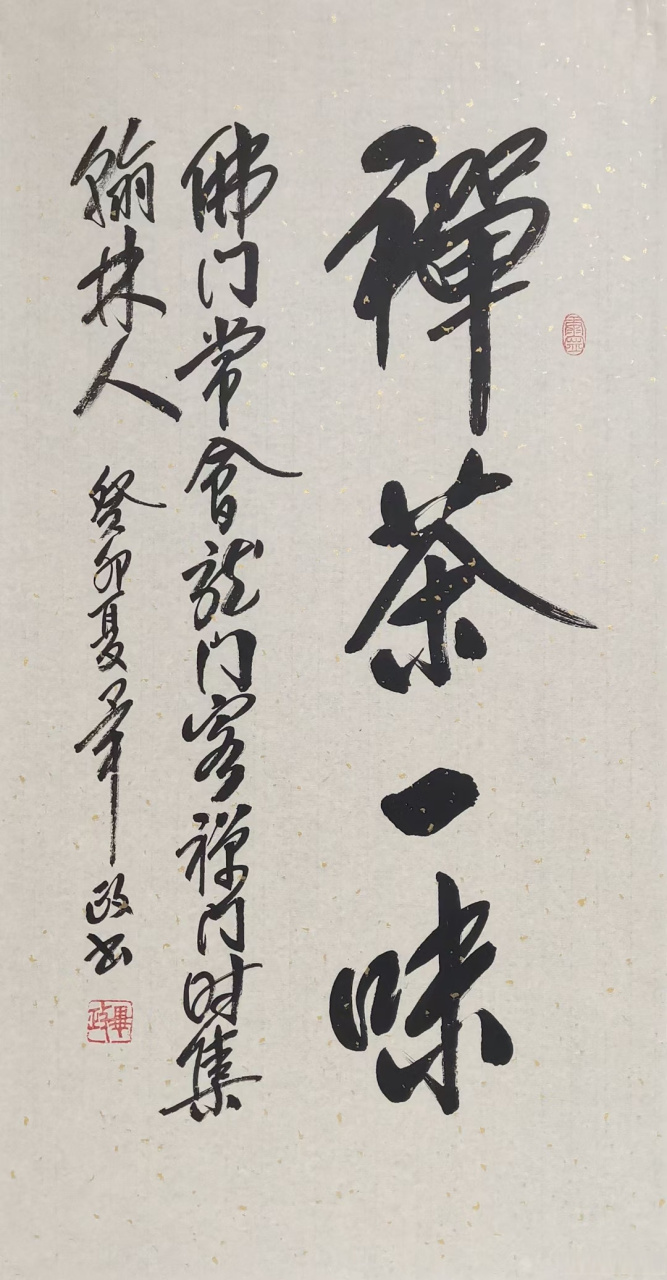 禪茶一味
佛门常會龙门客禅门时集
翰林人 癸卯夏 畢政书
畢政